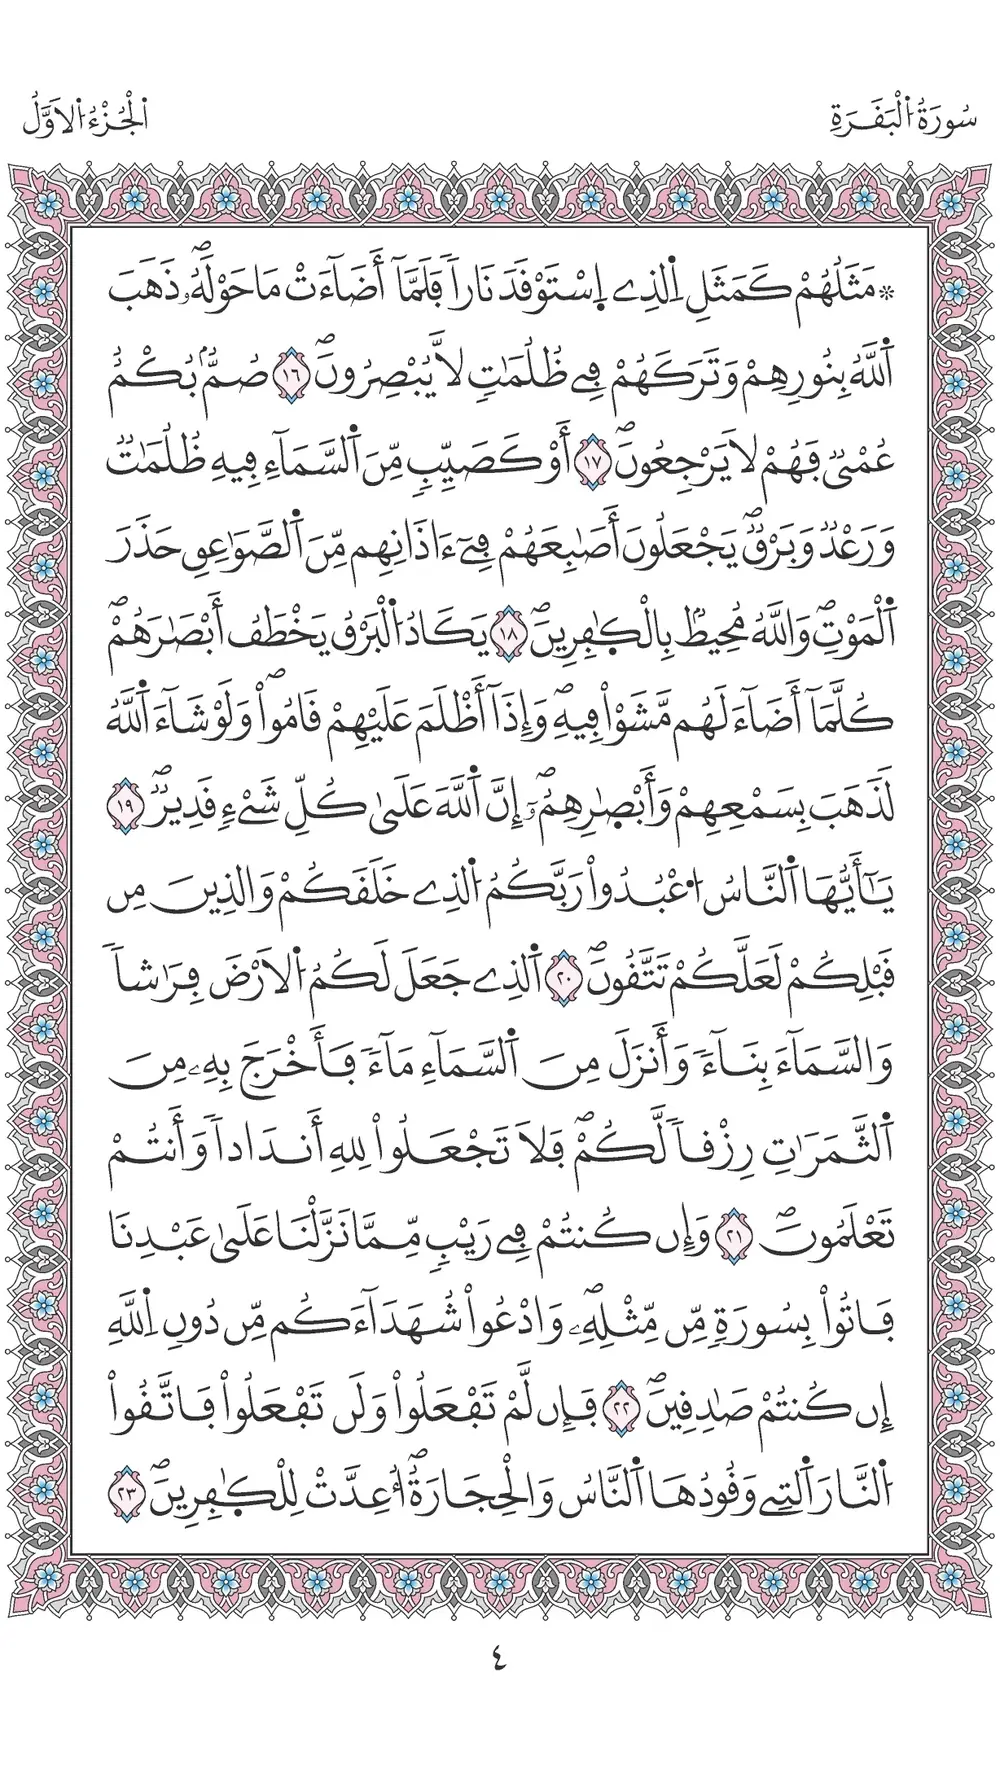 سُورَةُ اُ۬لْبَقَرَةِ
اُ۬لْجُزْءُ اُ۬لَاوَّلُ
۞ مَثَلُهُمْ كَمَثَلِ اِ۬لذِے اِ۪سْتَوْقَدَ نَاراٗ فَلَمَّآ أَضَآءَتْ مَا حَوْلَهُۥۖ ذَهَبَ
اَ۬للَّهُ بِنُورِهِمْ وَتَرَكَهُمْ فِے ظُلُمَٰتٖ لَّا يُبْصِرُونَۖ ١٦ صُمُّۢ بُكْمٌ
عُمْيٞ فَهُمْ لَا يَرْجِعُونَۖ ١٧ أَوْ كَصَيِّبٖ مِّنَ اَ۬لسَّمَآءِ فِيهِ ظُلُمَٰتٞ
وَرَعْدٞ وَبَرْقٞۖ يَجْعَلُونَ أَصَٰبِعَهُمْ فِےٓ ءَاذَانِهِم مِّنَ اَ۬لصَّوَٰعِقِ حَذَرَ
اَ۬لْمَوْتِۖ وَاللَّهُ مُحِيطُۢ بِالْكٰ۪فِرِينَۖ ١٨ يَكَادُ اُ۬لْبَرْقُ يَخْطَفُ أَبْصَٰرَهُمْۖ
كُلَّمَآ أَضَآءَ لَهُم مَّشَوْاْ فِيهِۖ وَإِذَآ أَظْلَمَ عَلَيْهِمْ قَامُواْۖ وَلَوْ شَآءَ اَ۬للَّهُ
لَذَهَبَ بِسَمْعِهِمْ وَأَبْصٰ۪رِهِمُۥٓۖ إِنَّ اَ۬للَّهَ عَلَىٰ كُلِّ شَےْءٖ قَدِيرٞۖ ١٩
يَٰٓأَيُّهَا اَ۬لنَّاسُ اُ۟عْبُدُواْ رَبَّكُمُ اُ۬لذِے خَلَقَكُمْ وَالذِينَ مِن
قَبْلِكُمْ لَعَلَّكُمْ تَتَّقُونَۖ ٢٠ اَ۬لذِے جَعَلَ لَكُمُ اُ۬لَارْضَ فِرَٰشاٗ
وَالسَّمَآءَ بِنَآءٗ وَأَنزَلَ مِنَ اَ۬لسَّمَآءِ مَآءٗ فَأَخْرَجَ بِهِۦ مِنَ
اَ۬لثَّمَرَٰتِ رِزْقاٗ لَّكُمْۖ فَلَا تَجْعَلُواْ لِلهِ أَندَاداٗ وَأَنتُمْ
تَعْلَمُونَۖ ٢١ وَإِن كُنتُمْ فِے رَيْبٖ مِّمَّا نَزَّلْنَا عَلَىٰ عَبْدِنَا
فَاتُواْ بِسُورَةٖ مِّن مِّثْلِهِۦۖ وَادْعُواْ شُهَدَآءَكُم مِّن دُونِ اِ۬للَّهِ
إِن كُنتُمْ صَٰدِقِينَۖ ٢٢ فَإِن لَّمْ تَفْعَلُواْ وَلَن تَفْعَلُواْ فَاتَّقُواْ
اُ۬لنَّارَ اَ۬لتِے وَقُودُهَا اَ۬لنَّاسُ وَالْحِجَارَةُۖ أُعِدَّتْ لِلْكٰ۪فِرِينَۖ ٢٣
٤